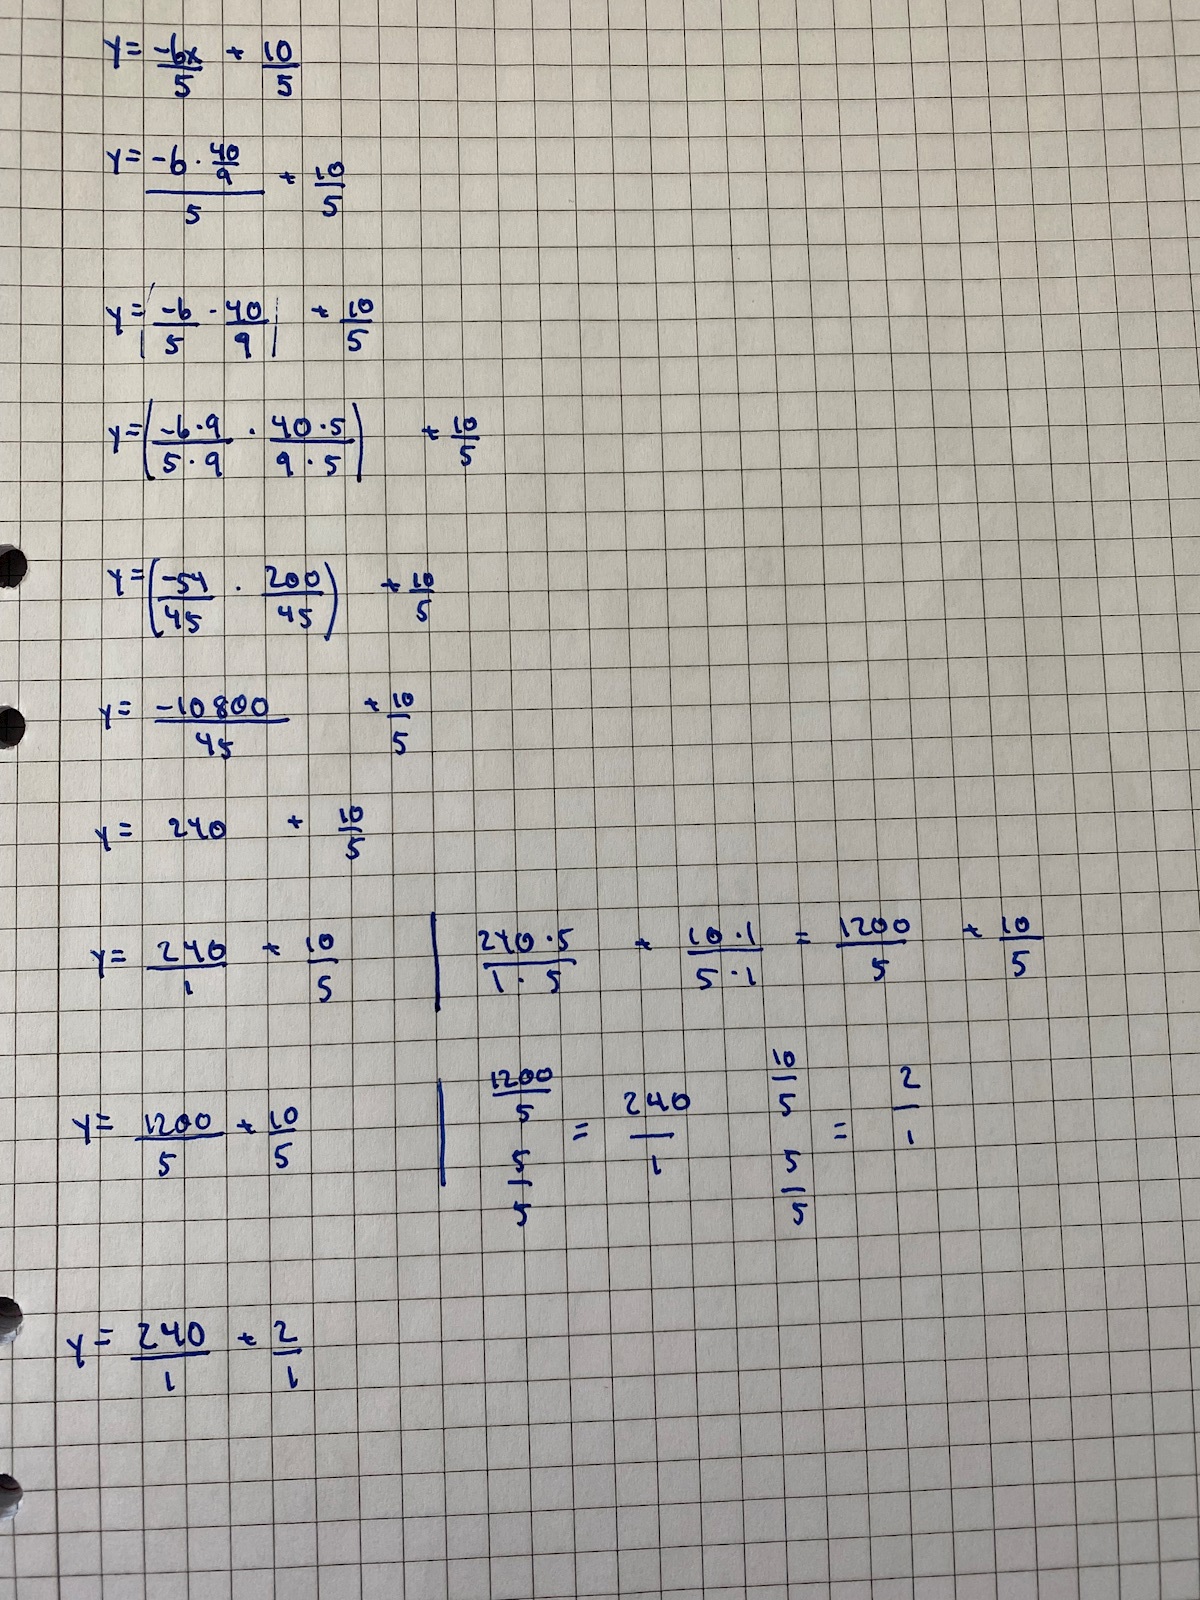 y = -6x/5 + 10/5
y = (-6 · 40/9)/5 + 10/5
y = (-6/5 · 40/9) + 10/5
y = ((-6·9)/(5·9) · (40·5)/(9·5)) + 10/5
y = (-54/45 · 200/45) + 10/5
y = -10800/45 + 10/5
y = 240 + 10/5
y = 240/1 + 10/5 | (240·5)/(1·5) + (10·1)/(5·1) = 1200/5 + 10/5
y = 1200/5 + 10/5 | 1200/5 5/5 = 240/1 10/5 5/5 = 2/1
y = 240/1 + 2/1